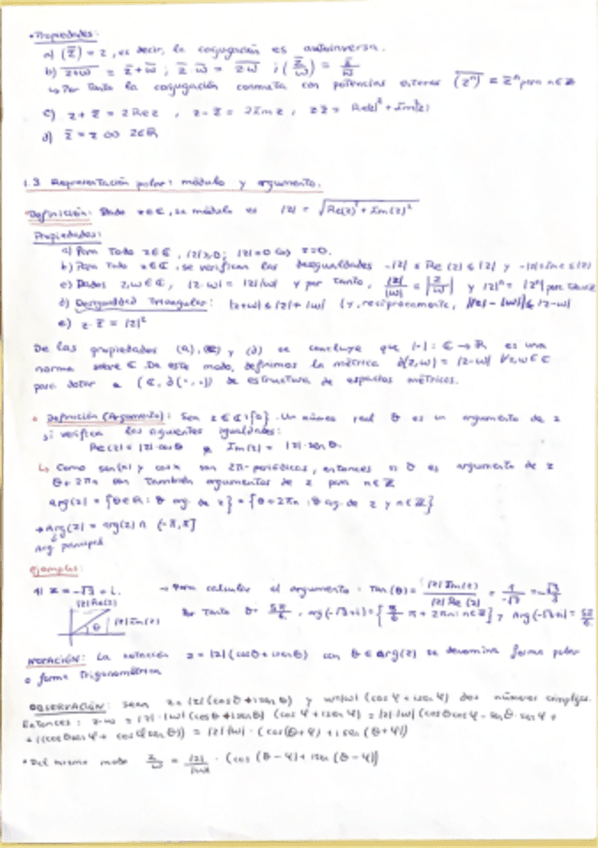 • Propiedades:
a) (z̄) = z, es decir, la conjugación es autoinversa.
b) \overline{z+w} = z̄ + w̄ ; z̄ · w̄ = \overline{zw} ; \overline{(z/w)} = z̄/w̄
↳ Por tanto la conjugación conmuta con potencias enteras \overline{(zⁿ)} = z̄ⁿ para n∈ℤ
c) z + z̄ = 2 Re z , z - z̄ = 2 Im z , z z̄ = Re(z)² + Im(z)²
d) z̄ = z ⇔ z∈ℝ
1.3 Representación polar: módulo y argumento.
Definición: Dado z∈ℂ, su módulo es |z| = √(Re(z)² + Im(z)²)
Propiedades:
a) Para todo z∈ℂ, |z| ≥ 0; |z| = 0 ⇔ z = 0.
b) Para todo z∈ℂ, se verifican las desigualdades -|z| ≤ Re(z) ≤ |z| y -|z| ≤ Im z ≤ |z|
c) Dados z,w∈ℂ, |z·w| = |z||w| y por tanto, |z|/|w| = |z/w| y |zⁿ| = |z|ⁿ para
d) Desigualdad Triangular: |z+w| ≤ |z| + |w| (y, recíprocamente, ||z| - |w|| ≤ |z-w|
e) z · z̄ = |z|²
De las propiedades (a), (c) y (d) se concluye que |·|: ℂ → ℝ es una
norma sobre ℂ. De este modo, definimos la métrica d(z,w) = |z-w| ∀z,w∈ℂ
para dotar a (ℂ, d(·,·)) de estructura de espacios métricos.
• Definición (Argumento): Sea z∈ℂ\{0}. Un número real θ es un argumento de z
si verifica las siguientes igualdades:
Re(z) = |z| · cos θ e Im(z) = |z| · sen θ.
↳ Como sen(x) y cos x son 2π-periódicas, entonces si θ es argumento de z
θ + 2πn son también argumentos de z para n∈ℤ
arg(z) = {θ∈ℝ : θ arg. de z} = {θ + 2πn : θ arg. de z y n∈ℤ}
→ Arg(z) = arg(z) ∩ (-π, π]
Arg. principal
Ejemplos:
1) z = -√3 + i. → Para calcular el argumento: Tan(θ) = |z| Im(z) / |z| Re(z) = 1/-√3 = -√3/3
|z| Re(z) θ |z| Im(z)
Por tanto θ = 5π/6, arg(-√3+i) = {5/6 π + 2πn : n∈ℤ} y Arg(-√3+i) = 5π/6
NOTACIÓN: La notación z = |z|(cosθ + i senθ) con θ∈arg(z) se denomina forma polar
o forma trigonométrica
OBSERVACIÓN: Sean z = |z|(cosθ + i senθ) y w = |w|(cosφ + i senφ) dos números complejos.
Entonces: z·w = |z| · |w| (cosθ + i senθ) (cosφ + i senφ) = |z||w| (cosθ cosφ - senθ · senφ +
+ i(cosθ senφ + cosφ senθ)) = |z||w| · (cos(θ+φ) + i sen(θ+φ))
• Del mismo modo z/w = |z|/|w| · (cos(θ-φ) + i sen(θ-φ))